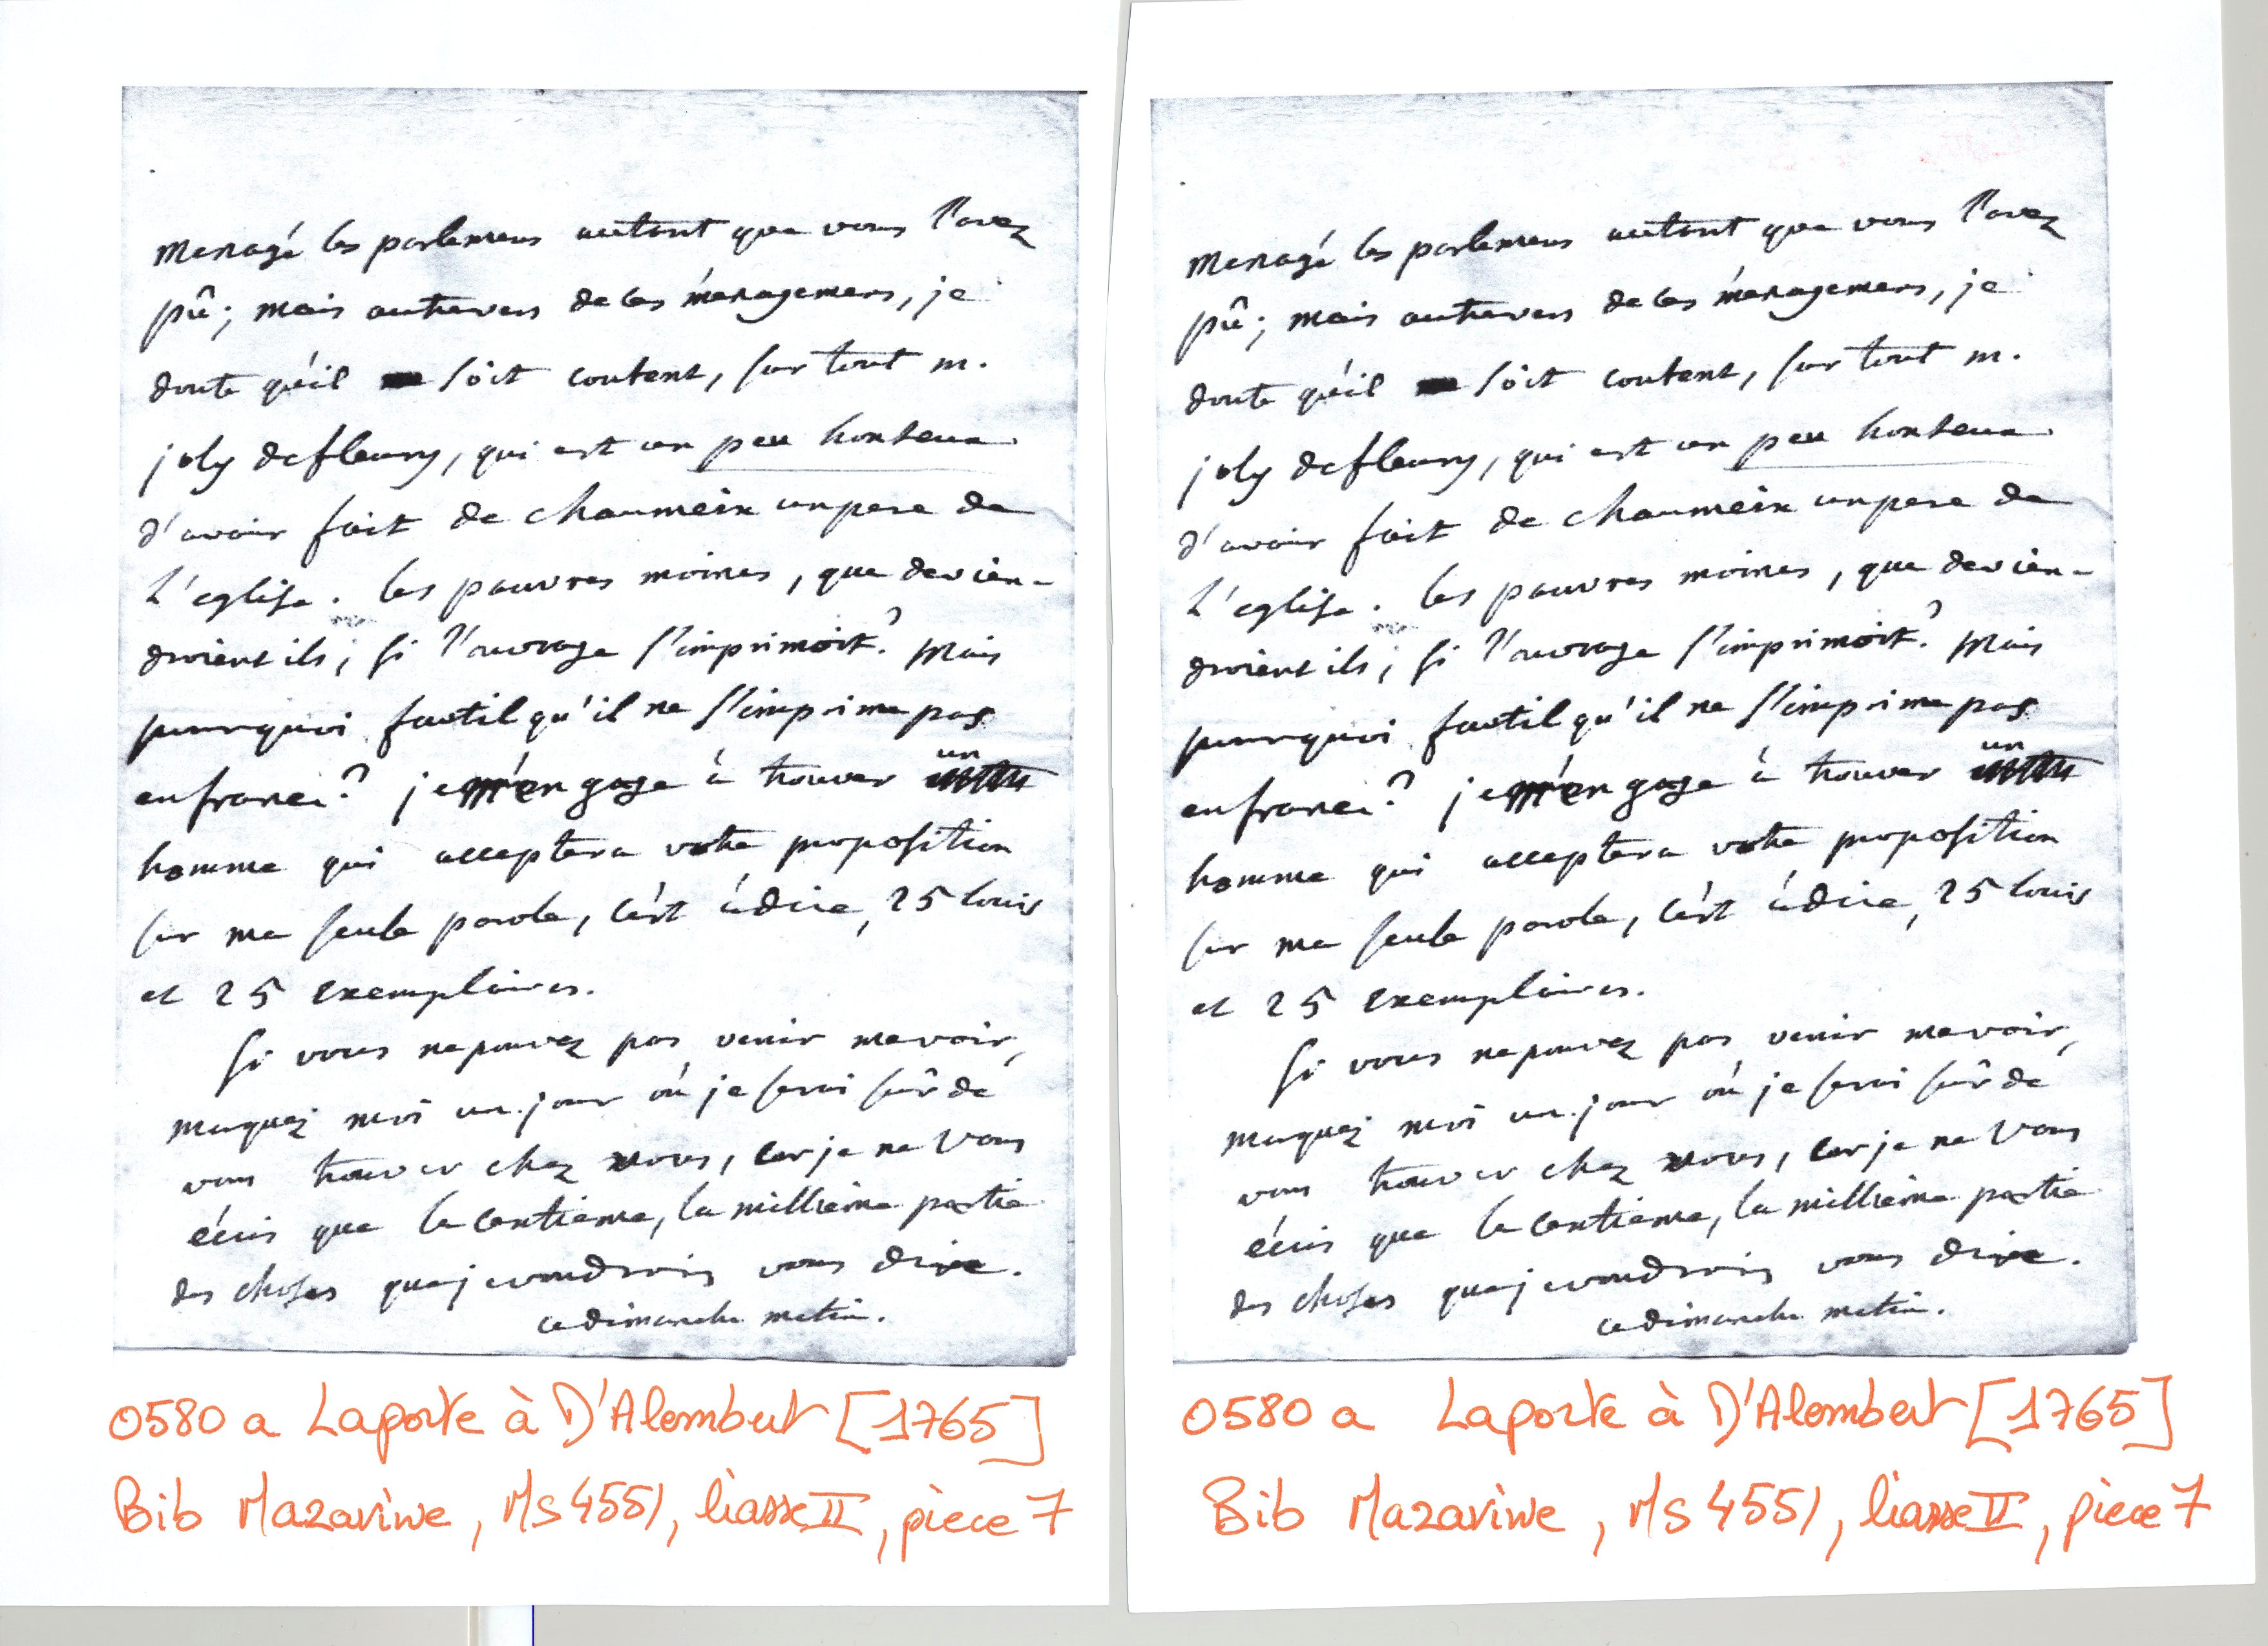 menagé les parlemens autant que vous l'avez
pû; mais autravers de ces menagemens, je
doute qu'il soit content, sur tout m.
joly defleury, qui est un peu honteux
d'avoir fait de chaumeix un pere de
L'eglise. les pauvres moines, que devien-
droient ils, si l'ouvrage s'imprimoit? Mais
pourquoi fautil qu'il ne s'imprime pas
en france? je m'engage à trouver un
homme qui acceptera votre proposition
sur ma seule parole, c'est àdire, 25 louis
et 25 exemplaires.
Si vous nepouvez pas venir mevoir,
marquez moi un jour où je serai sûr de
vous trouver chez vous, car je ne vous
écris que la centieme, la millieme partie
des choses que je voudrois vous dire.
ce dimanche matin.
0580 a Laporte à D'Alembert [1765]
Bib Mazarine, Ms 4551, liasse II, piece 7
menagé les parlemens autant que vous l'avez
pû; mais autravers de ces menagemens, je
doute qu'il soit content, sur tout m.
joly defleury, qui est un peu honteux
d'avoir fait de chaumeix un pere de
L'eglise. les pauvres moines, que devien-
droient ils, si l'ouvrage s'imprimoit? Mais
pourquoi fautil qu'il ne s'imprime pas
en france? je m'engage à trouver un
homme qui acceptera votre proposition
sur ma seule parole, c'est àdire, 25 louis
et 25 exemplaires.
Si vous nepouvez pas venir mevoir,
marquez moi un jour où je serai sûr de
vous trouver chez vous, car je ne vous
écris que la centieme, la millieme partie
des choses que je voudrois vous dire.
ce dimanche matin.
0580 a Laporte à D'Alembert [1765]
Bib Mazarine, Ms 4551, liasse II, piece 7